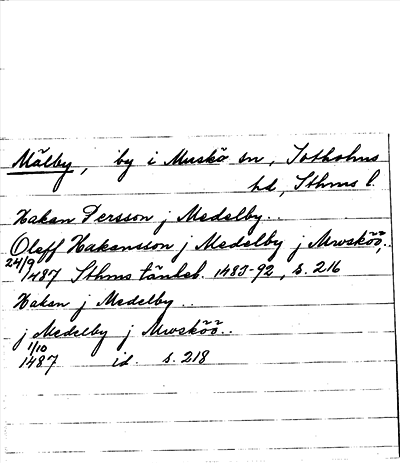 Mälby, by i Muskö sn, Sotholms
hd, Sthms l.
Hakan Persson j Medelby..
Oleff Hakansson j Medelby j Mwsköö,
24/9 1487 Sthms tänkeb. 1483-92, s. 216
Hakan j Medelby ..
j Medelby j Mwsköö..
1/10 1487 id. s. 218